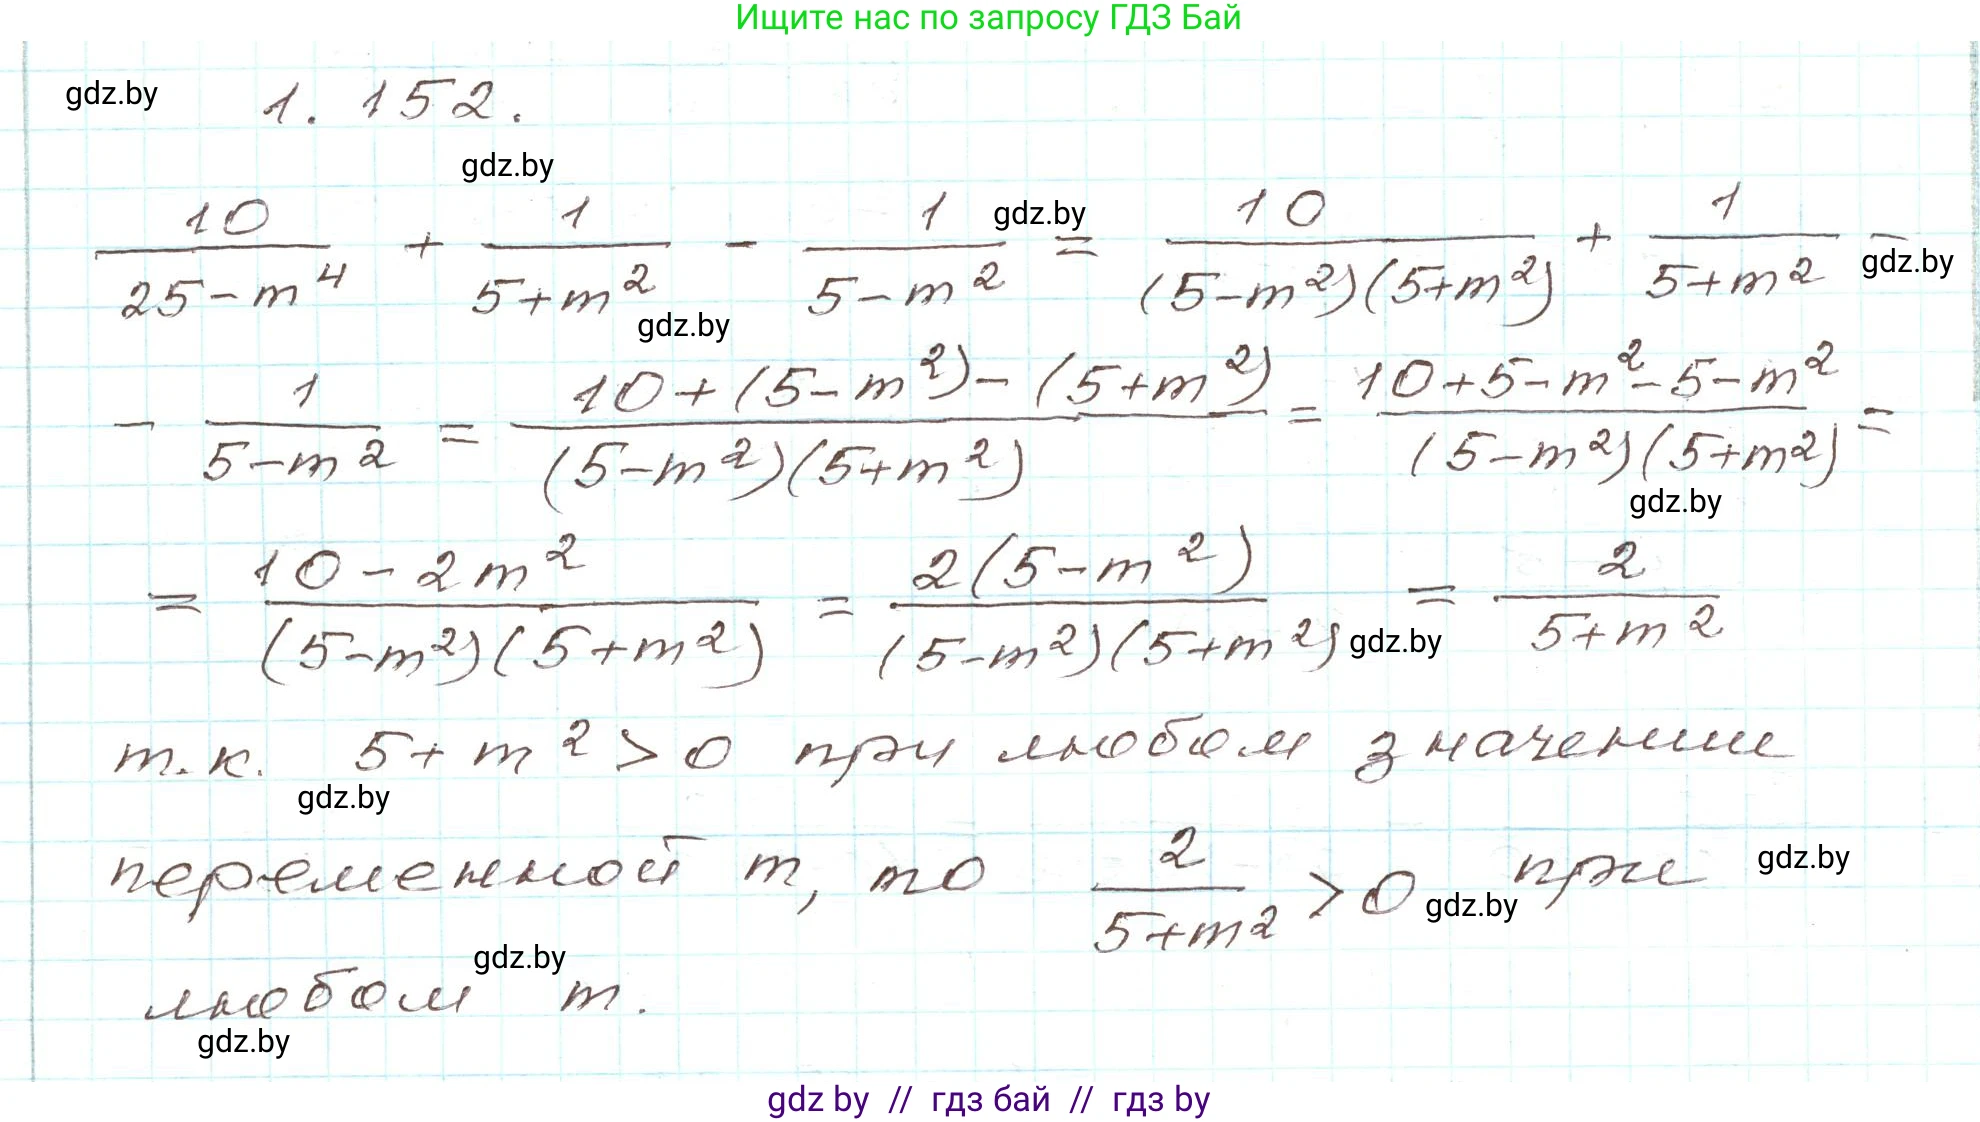 Ищите нас по запросу ГДЗ Бай
gdz.by
1.152.
gdz.by
10/(25-m⁴) + 1/(5+m²) - 1/(5-m²) = 10/((5-m²)(5+m²)) + 1/(5+m²) -
gdz.by
gdz.by
gdz.by
- 1/(5-m²) = (10+(5-m²)-(5+m²))/((5-m²)(5+m²)) = (10+5-m²-5-m²)/((5-m²)(5+m²)) =
gdz.by
= (10-2m²)/((5-m²)(5+m²)) = 2(5-m²)/((5-m²)(5+m²)) = 2/(5+m²)
gdz.by
т.к. 5+m²>0 при любом значении
gdz.by
переменной m, то 2/(5+m²) >0 при
gdz.by
gdz.by
gdz.by
любом m.
gdz.by
gdz by // гдз бай // гдз by